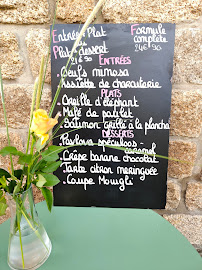 Entrée Plat
Plat dessert
21€90
Formule
complète
24€90
ENTRÉES
Oeufs mimosa
Assiette de charcuterie
PLATS
Oreille d'éléphant
Filé de poulet
Saumon Grillé à la plancha
DESSERTS
Pavlova spéculoos-
caramel
Crêpe banane chocolat
Tarte citron meringuée
Coupe Mowgli